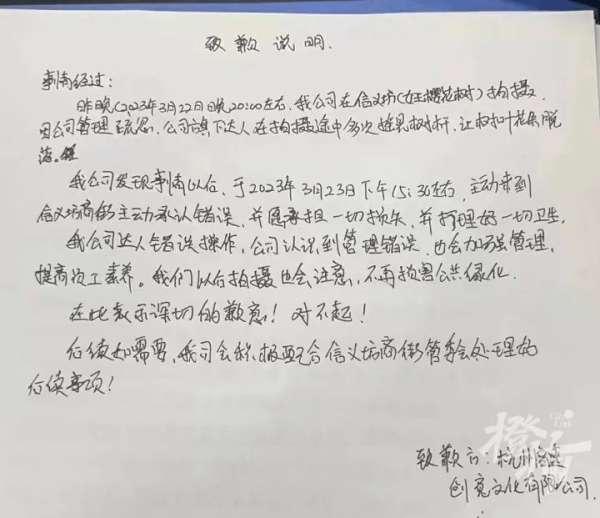 致歉说明.
事情经过:
昨晚(2023年3月22日晚20:00左右,我公司在信义坊(女王樱花树)拍摄.
因公司管理疏忽.公司旗下达人在拍摄途中多次摇晃树杆,让树叶花朵脱
落。
我公司发现事情以后,于2023年3月23日下午15:30左右,主动来到
信义坊商街主动承认错误,并愿承担一切损失,并打理好一切卫生,
我公司达人错误操作,公司认识到管理错误.也会加强管理,
提高员工素养。我们以后拍摄也会注意,不再损害公共绿化.
在此表示深切的歉意!对不起!
后续如需要,我司会积极配合信义坊商街管委会处理的
后续事项!
致歉方:杭州
创意文化有限公司.
橙